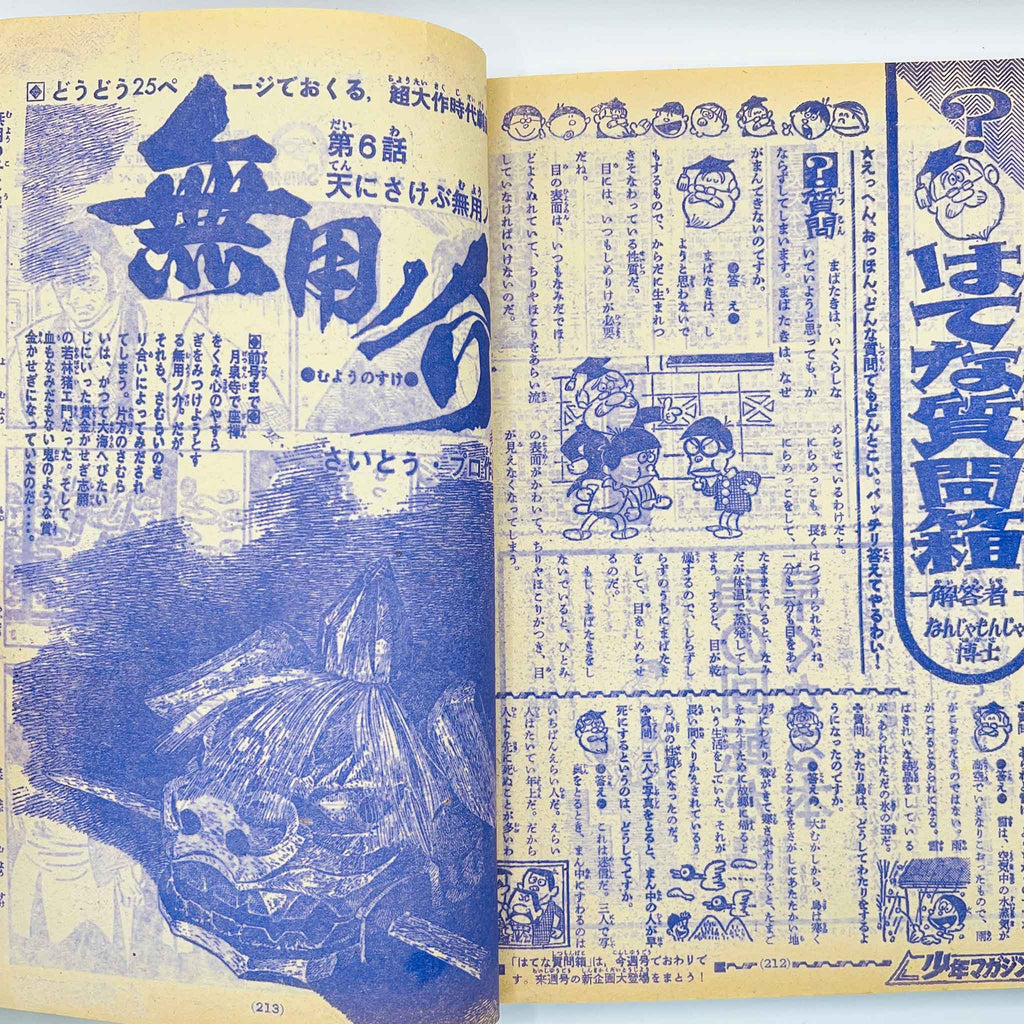 ?
はてな質問箱
解答者
なんじゃもんじゃ
博士
★えっへん、おっほん、どんな質問でもどんとこい。バッチリ答えてやるわい!
?質問
まばたきは、いくらしな
いでいようと思っても、か
ならずしてしまいます。まばたきは、なぜ
がまんできないのですか。
●答え●
まばたきは、し
ようと思わないで
もするもので、からだに生まれつ
きそなわっている性質だ。
目には、いつもしめりけが必要
だね。
目の表面は、いつもなみだでほ
どよくぬれていて、ちりやほこりをあらい流
していなければいけないのだ。
めらせているわけだよ。
にらめっこも、長くはつづけられないね。
にらめっこをして、一分も二分も目をあい
たままでいると、なみ
だが体温で蒸発して
まう。すると、目が乾
燥するので、しらずし
らずのうちにまばたき
をして、目をしめらせ
るのだ。
もし、まばたきをし
ないでいると、ひとみ
の表面がかわいて、ちりやほこりがつき、目
が見えなくなってしまう。
●答え●
雪は、空気中の水蒸気が
高空でいきなりこおったもので、雨
がこおったものではない。雨
がこおるとあられになる。雪
はきれいな結晶をしている
が、あられはただの氷の玉だ。
質問 わたり鳥は、どうしてわたりをするよ
うになったのですか。
●答え●
大むかしから、鳥は寒く
なるとえさをさがしにあたたかい地
方にわたり、春がきて寒さがやわらぐと、たまご
をかえすために故郷に帰ると
いう生活をしていた。それが
長い間くりかえされているう
ち、鳥の性質になったのだ。
質問 三人で写真をとると、まん中の人が早
死にするというのは、どうしてですか。
●答え●
これは迷信だ。三人で写
真をとるとき、まん中にすわるのは
いちばんえらい人だ。えらい
人はたいてい年上だ。だから
人より先に死ぬことが多いわ
「はてな質問箱」は、今週号でおわりで
す。来週号の新企画大登場をまとう!
(212)
少年マガジン
どうどう25ページでおくる,超大作時代劇
第6話
天にさけぶ無用ノ
無用ノ介
●むようのすけ●
さいとう・プロ作
●前号まで●
月泉寺で座禅
をくみ心のやすら
ぎをみつけようとす
る無用ノ介。だが、
それも、さむらいのき
り合いによってみだされ
てしまう。片方のさむら
いは、かつて大海へびたい
じにいった賞金かせぎ志願
の若林猪エ門だった。そして
血もなみだもない鬼のような賞
金かせぎになっていたのだ……。
(213)